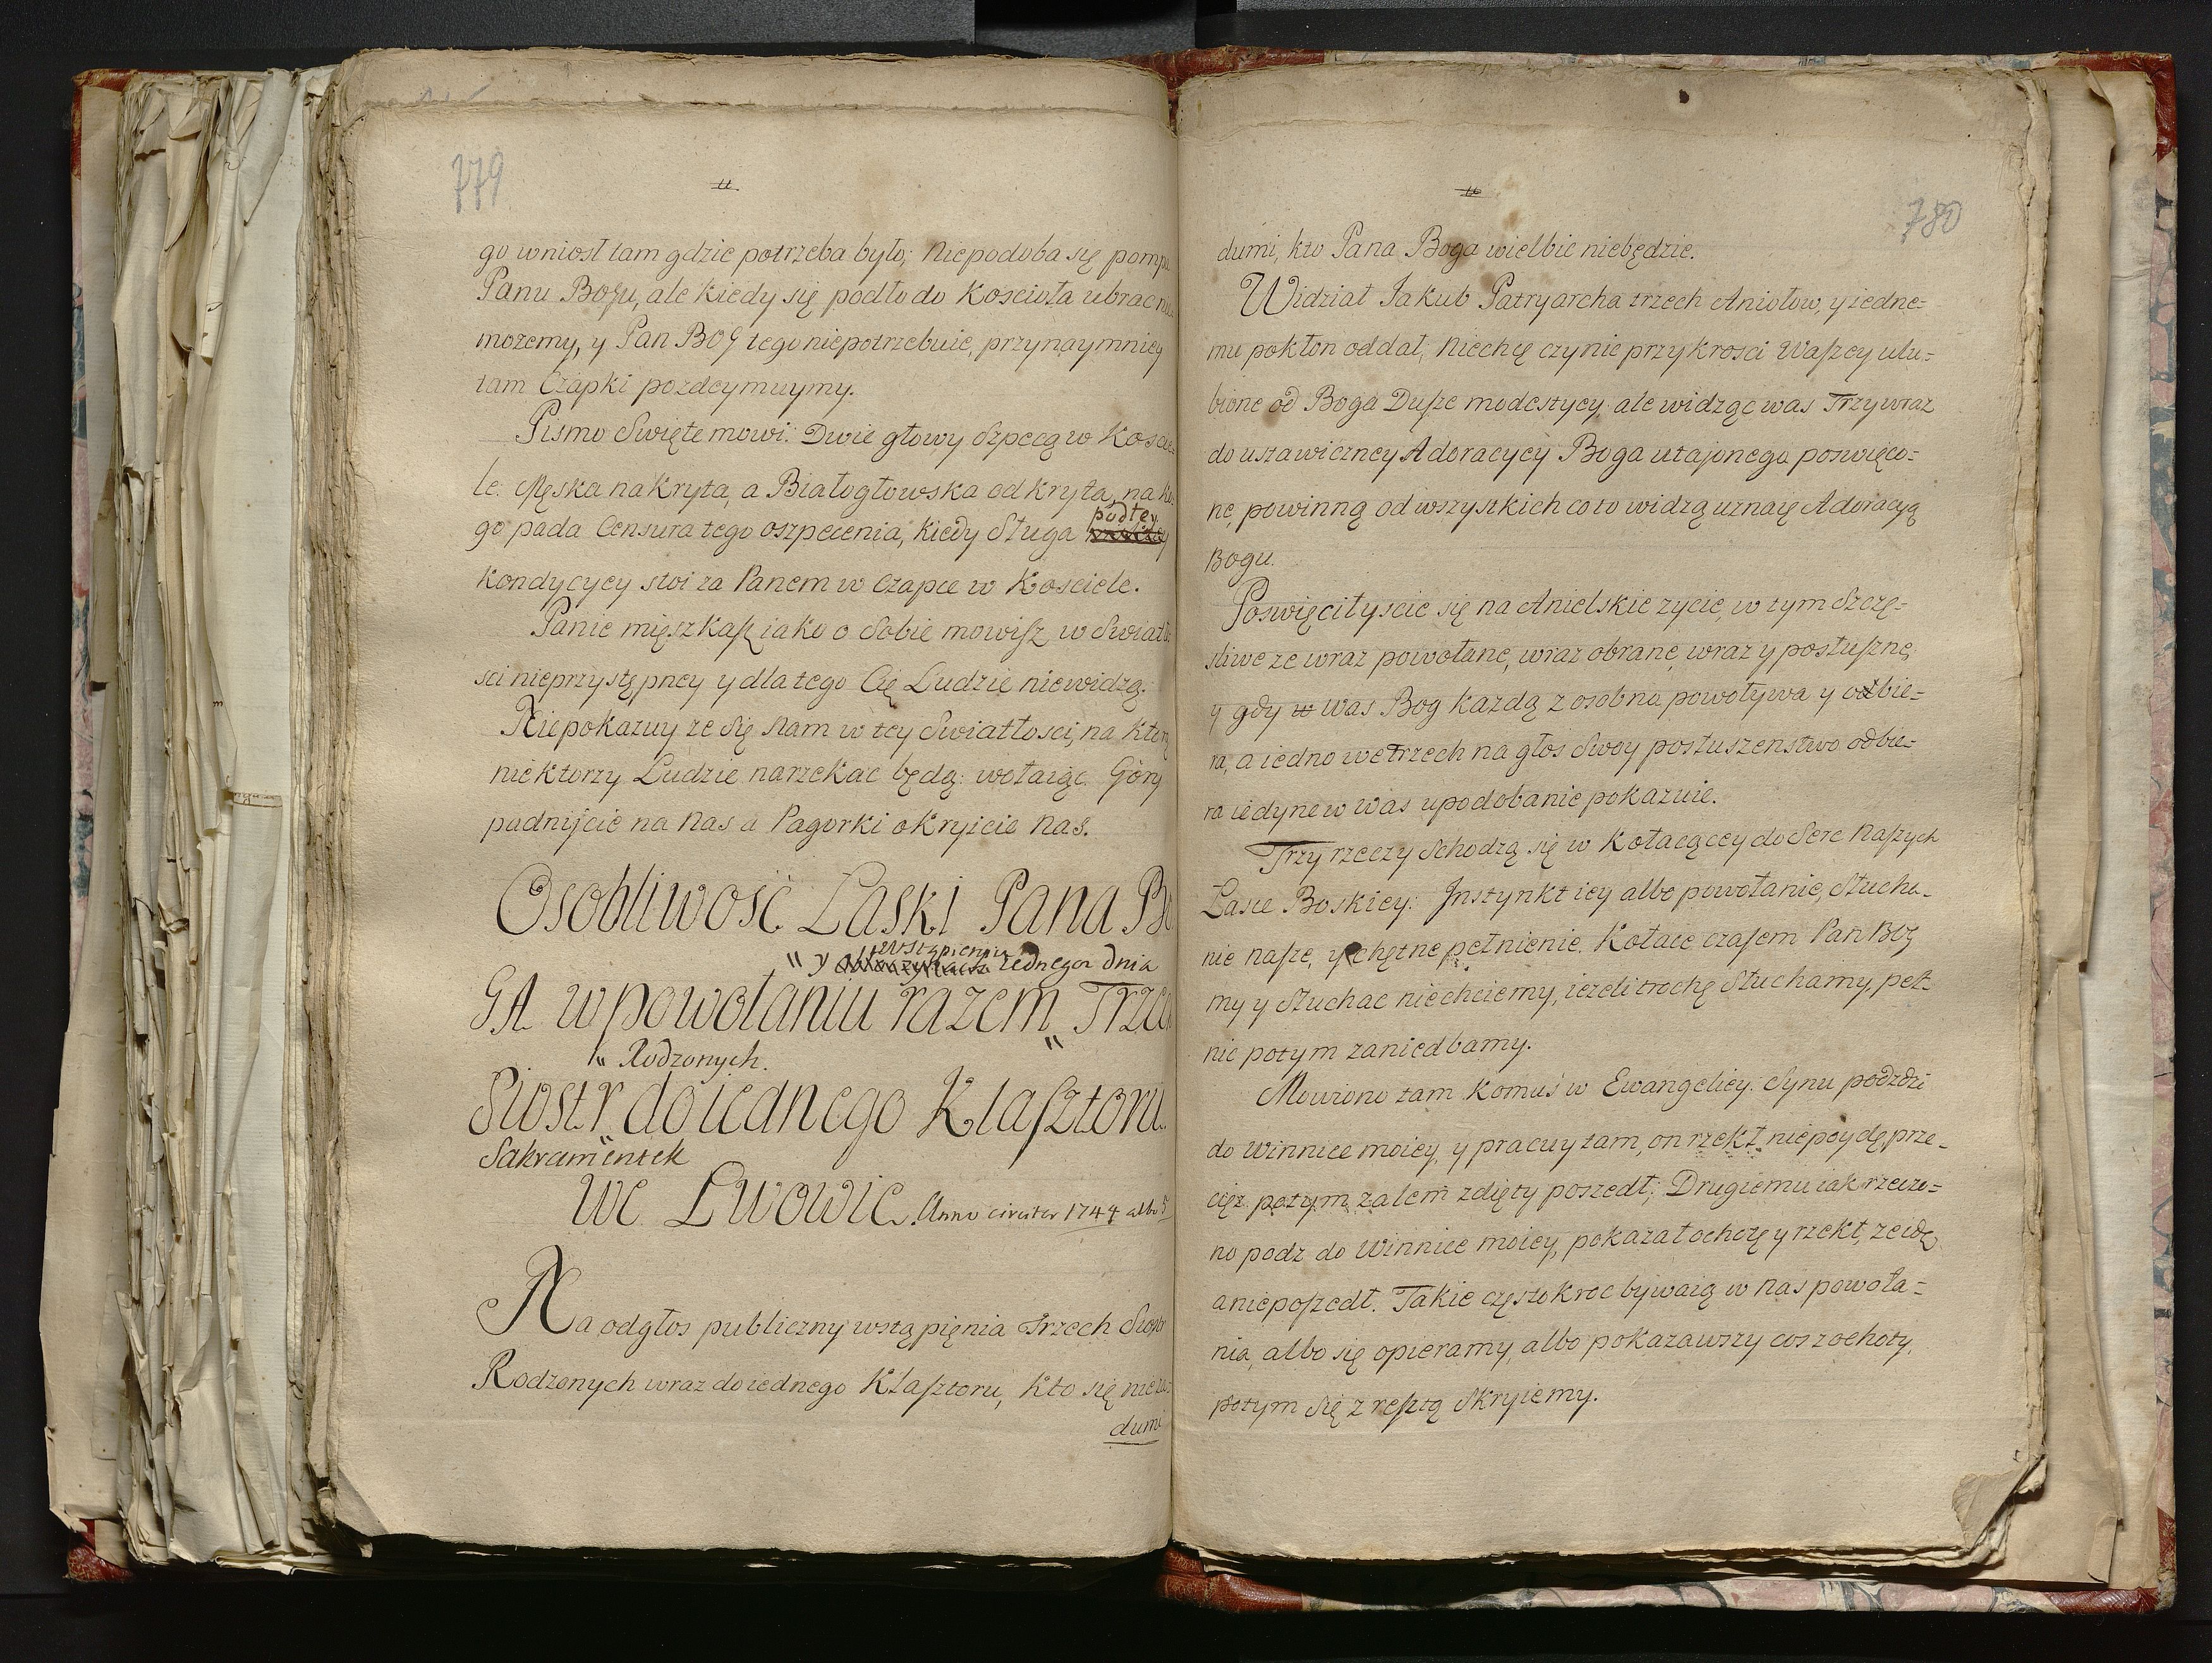 779
11
go wniosł tam gdzie potrzeba było; Niepodoba się pompa
Panu Bogu, ale kiedy się podło do Koscioła ubrac nie
mozemy, y Pan BOG tego niepotrzebuie, przynaymniey
tam Czapki pozdeymuymy.
Pismo Swięte mowi: Dwie głowy szpecą w Koscie-
le. Męska nakryta, a Białogłowska odkryta, na ko-
podłey
go pada Censura tego oszpecenia, kiedy Sługa
kondycyey stoi za Panem w Czapce w Kosciele.
Panie mięszkasz iako o Sobie mowisz w Swiatło
sci nieprzystępney y dla tego Cię Ludzie niewidzą.
Niepokazuy ze się Nam w tey Swiatłosci, na ktorą
niektorzy Ludzie narzekac będą: wołaiąc Góry
padniycie na Nas a Pagorki okryicie Nas.
Osobliwość Łaski Pana BO
wstąpieniu
" y iednego dnia
GA w powołaniu razem „ Trzech
" Rodzonych.
Siostr do iednego Klasztoru
Sakramentek
We Lwowie. Anno circiter 1744 albo 5
Na odgłos publiczny wstąpięnia Trzech Siostr
Rodzonych wraz do iednego Klasztoru, kto się niezu-
dumi
780
dumi, kto Pana Boga wielbic niebędzie.
Widział Jakub Patryarcha trzech Aniołow, y iedne=
mu pokłon oddał; Niechę czynic przykrosci Waszey ulu=
bione od Boga Dusze modestyey, ale widząc was Trzy wraz
do ustawiczney Adoracyey Boga utajonego poswięco=
ne, powinną od wszystkich co to widzą uznaię Adoracyą
Bogu.
Poswięciłyscie się na Anielskie zycie, w tym Szczę=
sliwe ze wraz powołane, wraz obrane, wraz y posłuszne,
y gdy w Was Bog kazdą z osobna powoływa y odbie=
ra, a iedno we trzech na głos Swoy posłuszenstwo odbie=
ra iedyne w was upodobanie pokazuie.
Trzy rzeczy Schodzą się w Kołacącey do Serc Naszych
Łasce Boskiey: Jnstynkt iey albo powołanie, Słucha-
nie nasze, y chętne pełnienie. Kołace czasem Pan BOG
my y Słuchac niechciemy, iezeli trochę Słuchamy, peł-
nic potym zaniedbamy.
Mowiono tam komuś w Ewangeliey: Synu podzdzi
do Winnice moiey, y pracuy tam, on rzekł niepoydę, prze-
cięz potym zalem zdięty poszedł; Drugiemu iak rzeczo=
no podz do Winnice moiey, pokazał ochotę y rzekł, ze idę,
a nieposzedł. Takie częstokroc bywaią w Nas powoła=
nia, albo się opieramy, albo pokazawszy cos z ochoty,
potym się z resztą Skryiemy.